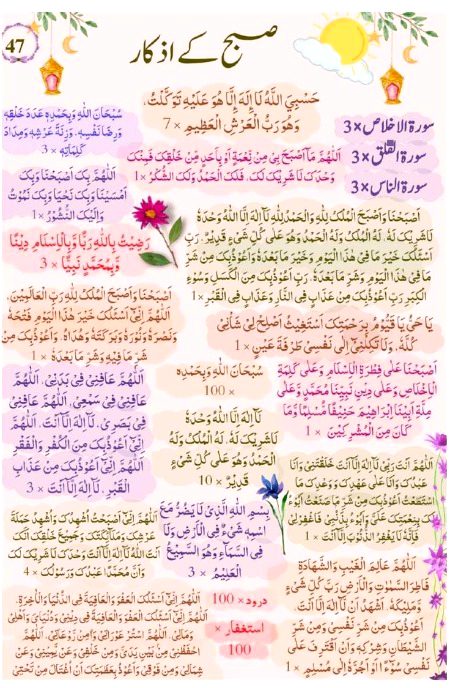 47
صبح کے اذکار
حَسْبِيَ اللّٰهُ لَا إِلَهَ إِلَّا هُوَ عَلَيْهِ تَوَكَّلْتُ،
وَهُوَ رَبُّ الْعَرْشِ الْعَظِيْمِ × 7
سُبْحَانَ اللّٰهِ وَبِحَمْدِهٖ عَدَدَ خَلْقِهٖ
وَرِضَا نَفْسِهٖ، وَزِنَةَ عَرْشِهٖ وَمِدَادَ
كَلِمَاتِهٖ × 3
سورۃ الاخلاص × 3
سورۃ الفلق × 3
سورۃ الناس × 3
اَللّٰهُمَّ مَا اَصْبَحَ بِيْ مِنْ نِّعْمَةٍ اَوْ بِاَحَدٍ مِّنْ خَلْقِكَ فَمِنْكَ
وَحْدَكَ لَا شَرِيْكَ لَكَ، فَلَكَ الْحَمْدُ وَلَكَ الشُّكْرُ × 1
اَللّٰهُمَّ بِكَ اَصْبَحْنَا وَبِكَ
اَمْسَيْنَا وَبِكَ نَحْيَا وَبِكَ نَمُوْتُ
وَاِلَيْكَ النُّشُوْرُ × 1
اَصْبَحْنَا وَاَصْبَحَ الْمُلْكُ لِلّٰهِ وَالْحَمْدُ لِلّٰهِ لَا اِلٰهَ اِلَّا اللّٰهُ وَحْدَهٗ
لَا شَرِيْكَ لَهٗ، لَهُ الْمُلْكُ وَلَهُ الْحَمْدُ وَهُوَ عَلٰى كُلِّ شَيْءٍ قَدِيْرٌ، رَبِّ
اَسْئَلُكَ خَيْرَ مَا فِيْ هٰذَا الْيَوْمِ وَخَيْرَ مَا بَعْدَهٗ وَاَعُوْذُ بِكَ مِنْ شَرِّ
مَا فِيْ هٰذَا الْيَوْمِ وَشَرِّ مَا بَعْدَهٗ، رَبِّ اَعُوْذُ بِكَ مِنَ الْكَسَلِ وَسُوْءِ
الْكِبَرِ رَبِّ اَعُوْذُ بِكَ مِنْ عَذَابٍ فِي النَّارِ وَعَذَابٍ فِي الْقَبْرِ × 1
رَضِيْتُ بِاللّٰهِ رَبًّا وَّبِالْاِسْلَامِ دِيْنًا
وَّبِمُحَمَّدٍ نَبِيًّا × 3
اَصْبَحْنَا وَاَصْبَحَ الْمُلْكُ لِلّٰهِ رَبِّ الْعَالَمِيْنَ،
اَللّٰهُمَّ اِنِّيْ اَسْئَلُكَ خَيْرَ هٰذَا الْيَوْمِ فَتْحَهٗ
وَنَصْرَهٗ وَنُوْرَهٗ وَبَرَكَتَهٗ وَهُدَاهُ، وَاَعُوْذُ بِكَ مِنْ
شَرِّ مَا فِيْهِ وَشَرِّ مَا بَعْدَهٗ × 1
يَا حَيُّ يَا قَيُّوْمُ بِرَحْمَتِكَ اَسْتَغِيْثُ اَصْلِحْ لِيْ شَاْنِيْ
كُلَّهٗ، وَلَا تَكِلْنِيْ اِلٰى نَفْسِيْ طَرْفَةَ عَيْنٍ × 1
اَصْبَحْنَا عَلٰى فِطْرَةِ الْاِسْلَامِ، وَعَلٰى كَلِمَةِ
الْاِخْلَاصِ وَعَلٰى دِيْنِ نَبِيِّنَا مُحَمَّدٍ وَّعَلٰى
مِلَّةِ اَبِيْنَا اِبْرَاهِيْمَ حَنِيْفًا مُّسْلِمًا وَّمَا
كَانَ مِنَ الْمُشْرِكِيْنَ × 1
سُبْحَانَ اللّٰهِ وَبِحَمْدِهٖ
× 100
اَللّٰهُمَّ عَافِنِيْ فِيْ بَدَنِيْ، اَللّٰهُمَّ
عَافِنِيْ فِيْ سَمْعِيْ، اَللّٰهُمَّ عَافِنِيْ
فِيْ بَصَرِيْ، لَا اِلٰهَ اِلَّا اَنْتَ، اَللّٰهُمَّ
اِنِّيْ اَعُوْذُ بِكَ مِنَ الْكُفْرِ وَالْفَقْرِ
اَللّٰهُمَّ اِنِّيْ اَعُوْذُ بِكَ مِنْ عَذَابِ
الْقَبْرِ، لَا اِلٰهَ اِلَّا اَنْتَ × 3
لَا اِلٰهَ اِلَّا اللّٰهُ وَحْدَهٗ
لَا شَرِيْكَ لَهٗ، لَهُ الْمُلْكُ وَلَهُ
الْحَمْدُ وَهُوَ عَلٰى كُلِّ شَيْءٍ
قَدِيْرٌ × 10
اَللّٰهُمَّ اَنْتَ رَبِّيْ لَا اِلٰهَ اِلَّا اَنْتَ خَلَقْتَنِيْ وَاَنَا
عَبْدُكَ وَاَنَا عَلٰى عَهْدِكَ وَوَعْدِكَ مَا
اسْتَطَعْتُ اَعُوْذُ بِكَ مِنْ شَرِّ مَا صَنَعْتُ اَبُوْءُ
لَكَ بِنِعْمَتِكَ عَلَيَّ وَاَبُوْءُ بِذَنْبِيْ فَاغْفِرْ لِيْ
فَاِنَّهٗ لَا يَغْفِرُ الذُّنُوْبَ اِلَّا اَنْتَ × 1
بِسْمِ اللّٰهِ الَّذِيْ لَا يَضُرُّ مَعَ
اسْمِهٖ شَيْءٌ فِي الْاَرْضِ وَلَا
فِي السَّمَآءِ وَهُوَ السَّمِيْعُ
الْعَلِيْمُ × 3
اَللّٰهُمَّ اِنِّيْ اَصْبَحْتُ اُشْهِدُكَ وَاُشْهِدُ حَمَلَةَ
عَرْشِكَ وَمَلَآئِكَتَكَ وَجَمِيْعَ خَلْقِكَ اَنَّكَ
اَنْتَ اللّٰهُ لَا اِلٰهَ اِلَّا اَنْتَ وَحْدَكَ لَا شَرِيْكَ لَكَ
وَاَنَّ مُحَمَّدًا عَبْدُكَ وَرَسُوْلُكَ × 4
اَللّٰهُمَّ عَالِمَ الْغَيْبِ وَالشَّهَادَةِ
فَاطِرَ السَّمٰوٰتِ وَالْاَرْضِ رَبَّ كُلِّ شَيْءٍ
وَّمَلِيْكَهٗ، اَشْهَدُ اَنْ لَّا اِلٰهَ اِلَّا اَنْتَ
اَعُوْذُ بِكَ مِنْ شَرِّ نَفْسِيْ وَمِنْ شَرِّ
الشَّيْطَانِ وَشِرْكِهٖ وَاَنْ اَقْتَرِفَ عَلٰى
نَفْسِيْ سُوْٓءًا اَوْ اَجُرَّهٗ اِلٰى مُسْلِمٍ × 1
درود × 100
استغفار ×
100
اَللّٰهُمَّ اِنِّيْ اَسْئَلُكَ الْعَفْوَ وَالْعَافِيَةَ فِي الدُّنْيَا وَالْاٰخِرَةِ،
اَللّٰهُمَّ اِنِّيْ اَسْئَلُكَ الْعَفْوَ وَالْعَافِيَةَ فِيْ دِيْنِيْ وَدُنْيَايَ وَاَهْلِيْ
وَمَالِيْ، اَللّٰهُمَّ اسْتُرْ عَوْرَاتِيْ وَاٰمِنْ رَوْعَاتِيْ، اَللّٰهُمَّ
احْفَظْنِيْ مِنْ بَيْنِ يَدَيَّ وَمِنْ خَلْفِيْ وَعَنْ يَّمِيْنِيْ وَعَنْ
شِمَالِيْ وَمِنْ فَوْقِيْ وَاَعُوْذُ بِعَظَمَتِكَ اَنْ اُغْتَالَ مِنْ تَحْتِيْ